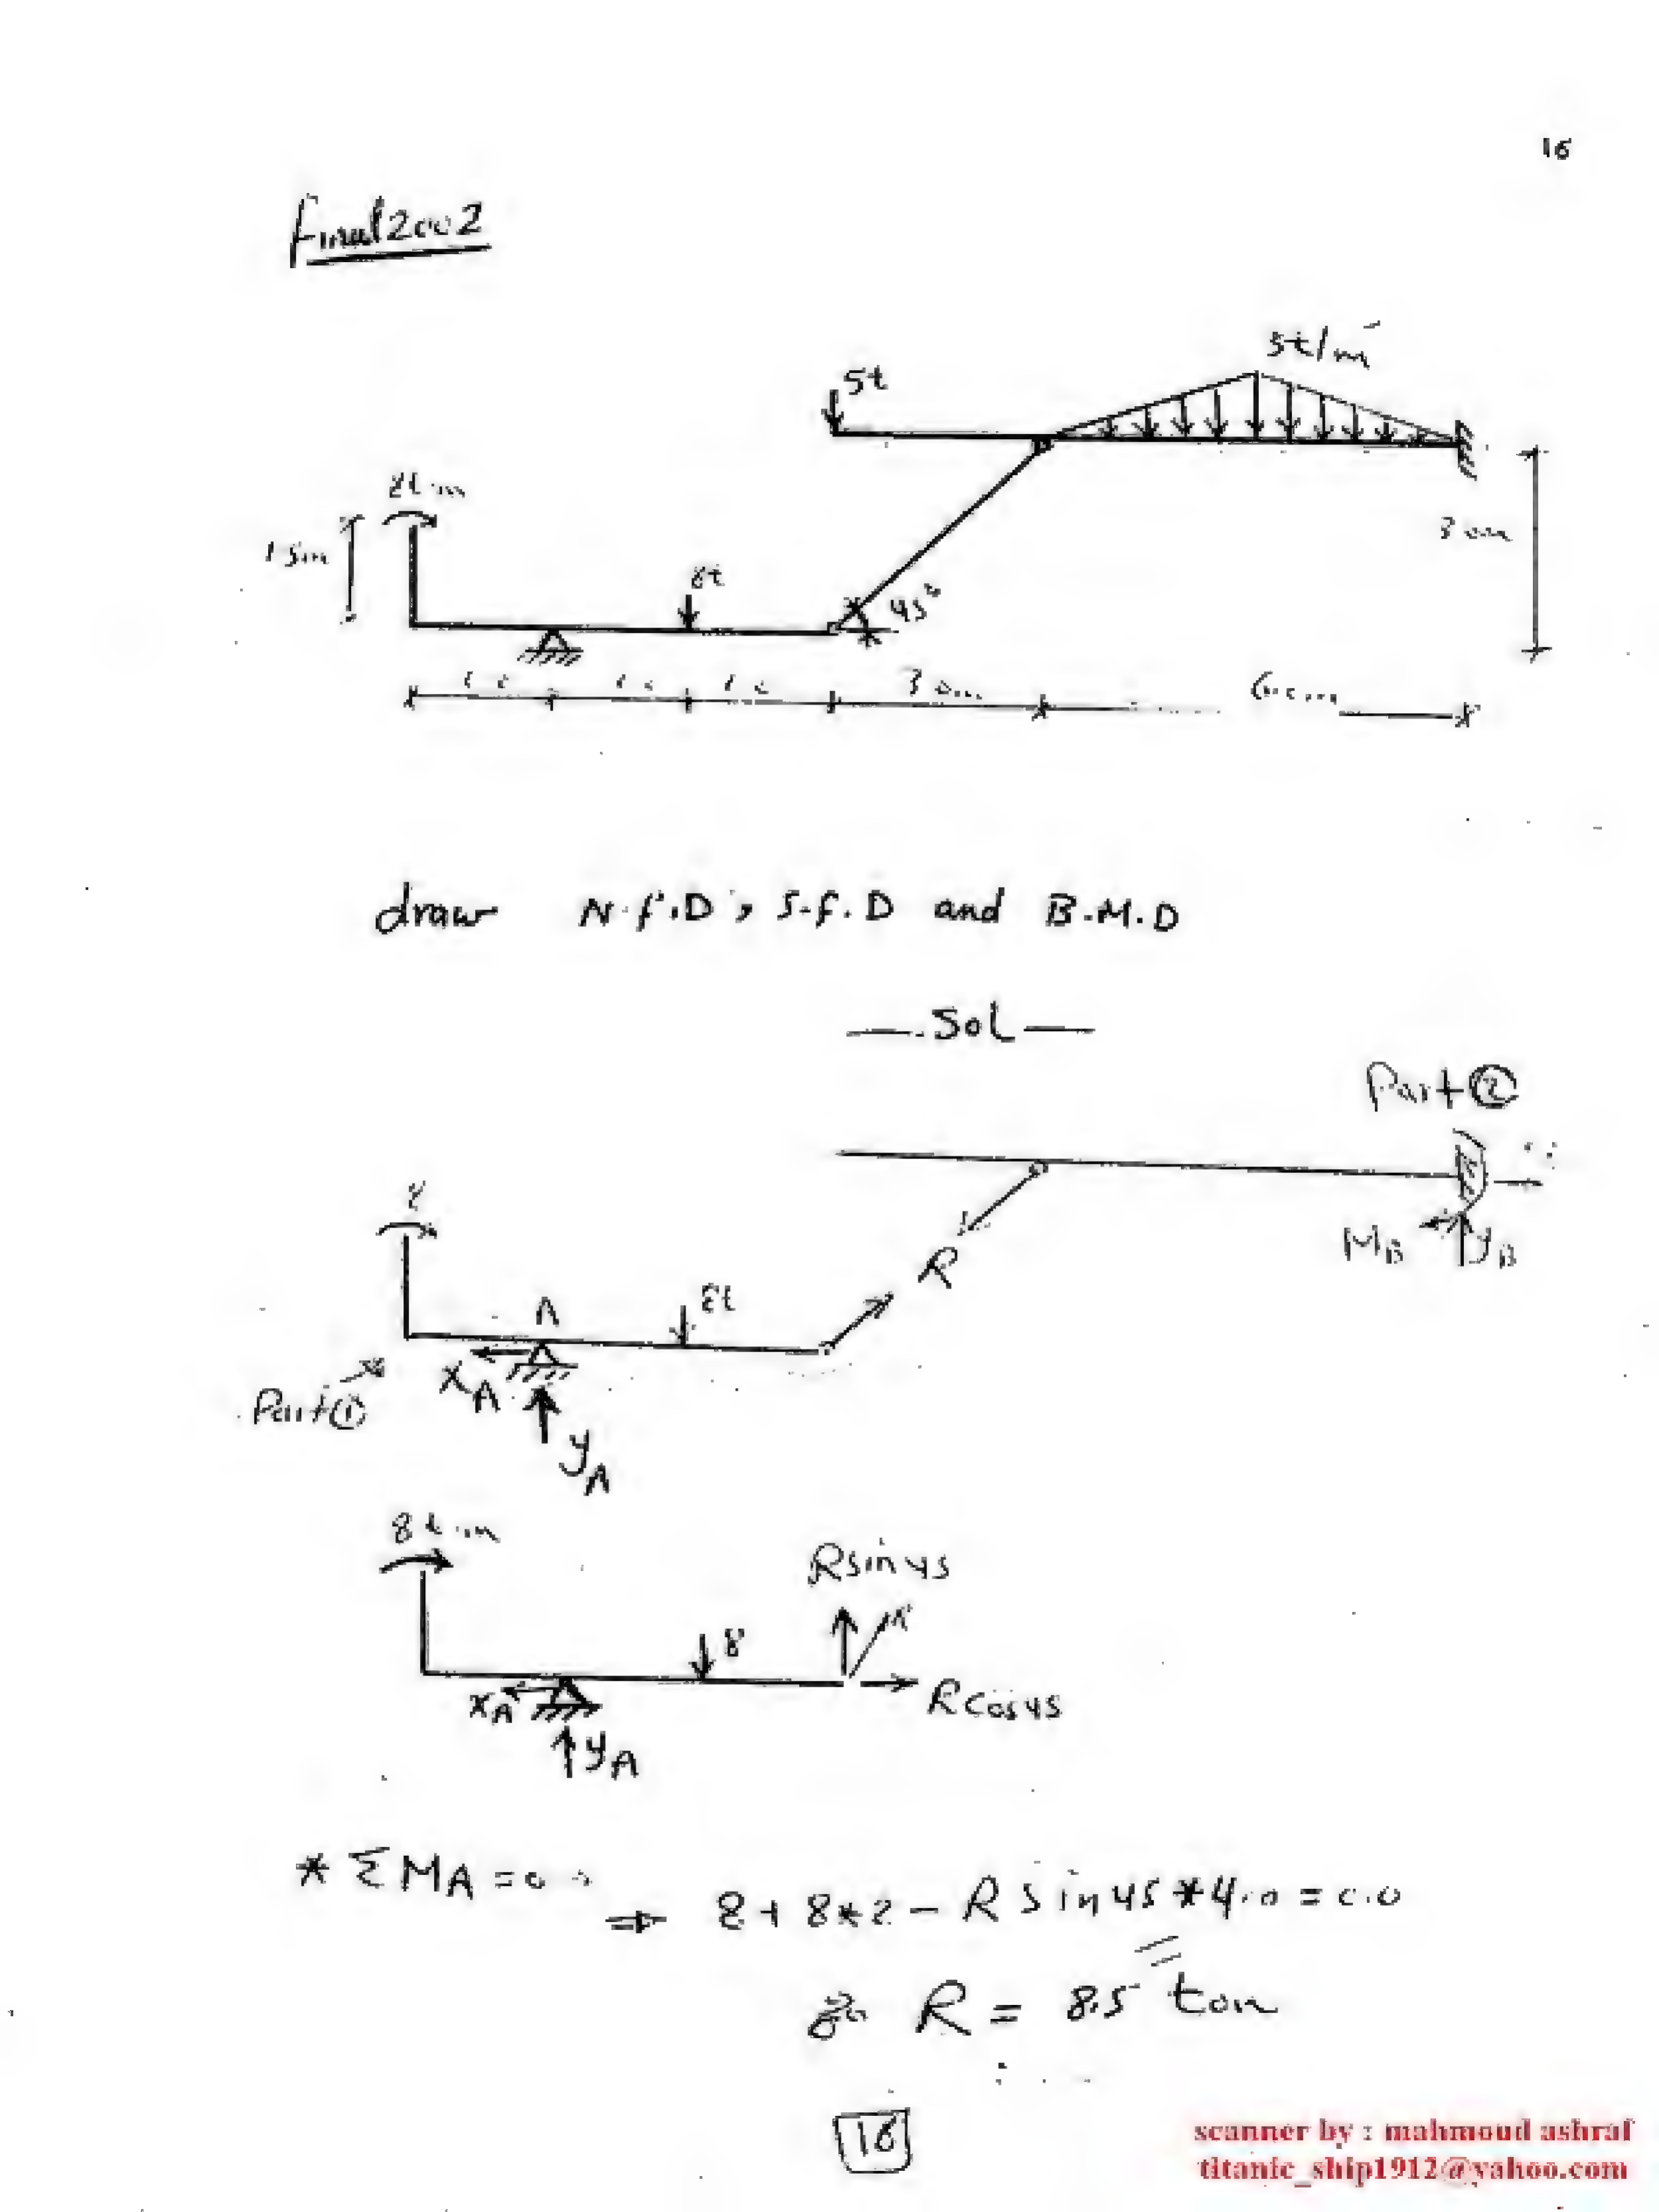 16
Final 2002
5t
3t/m'
8t.m
1.5m
3.0m
8t
45°
3.0m
6.0m
draw N.F.D, S.F.D and B.M.D
Sol
Part ②
R
MB
yB
8t
A
xA
Part ①
yA
8t.m
R sin 45
R
8
R cos 45
xA
yA
* ΣMA = 0.0
⇒ 8 + 8*2 - R sin 45 * 4.0 = 0.0
R = 8.5 ton
16
scanner by : mahmoud ashraf
titanic_ship1912@yahoo.com